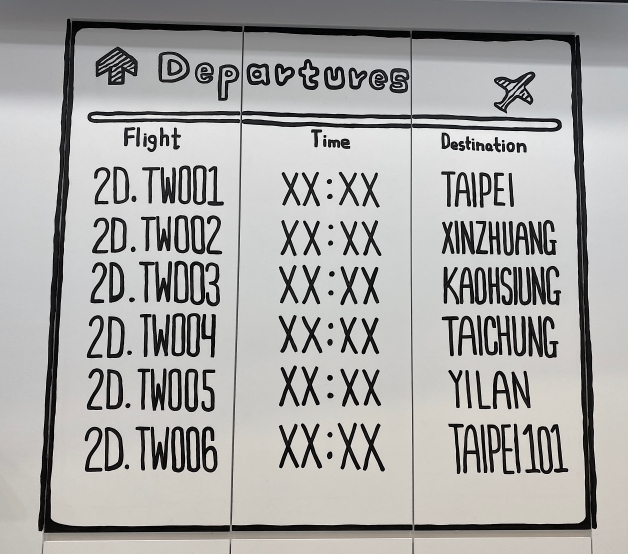 Departures
Flight Time Destination
2D.TW001 XX:XX TAIPEI
2D.TW002 XX:XX XINZHUANG
2D.TW003 XX:XX KAOHSIUNG
2D.TW004 XX:XX TAICHUNG
2D.TW005 XX:XX YILAN
2D.TW006 XX:XX TAIPEI101